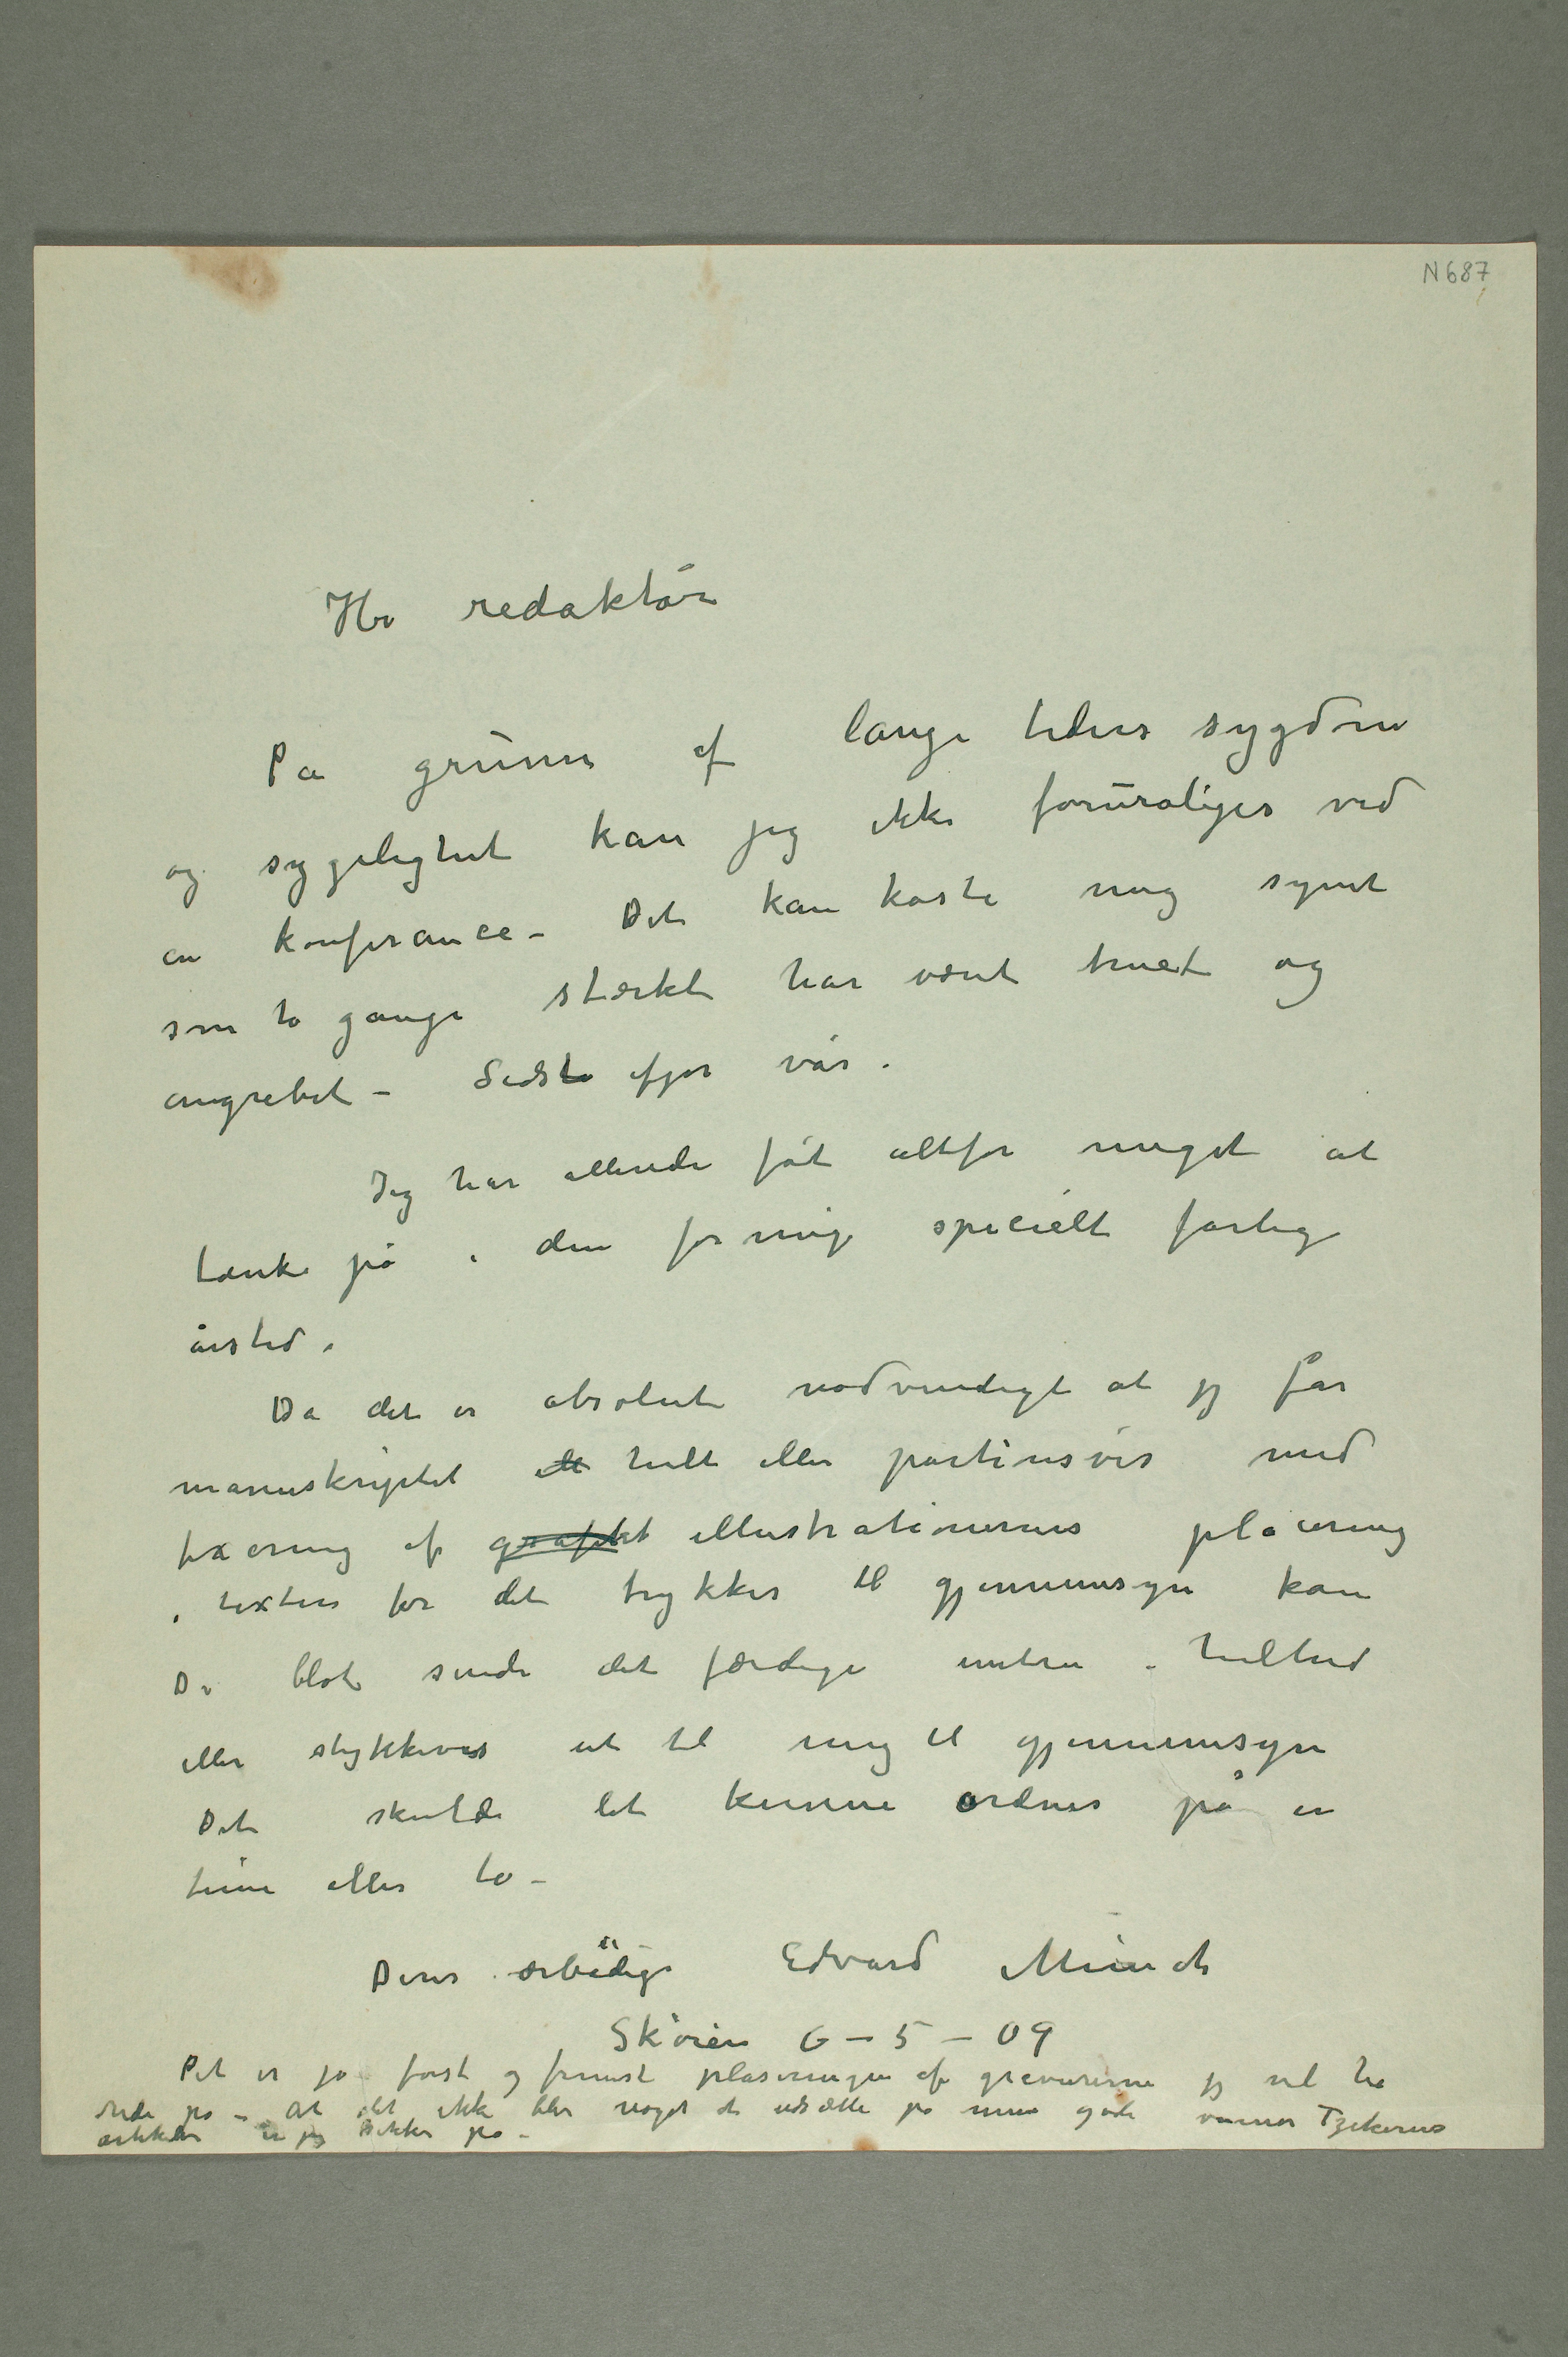 N 687
Hr redaktör
På grunn af lange tiders sygdom
og sygelighet kan jeg ikke foruroliges ved
en konferance – Det kan koste mig synet
som to gange stærkt har været truet og
angrebet – Sidst ifjor vår.
Jeg har allerede fåt altfor meget at
tænke på i den for mig specielt farlig
årstid.
Da det er absolut nødvendigt at jeg får
manuskriptet helt eller partivis med
fixering af grafikt illustrationernes placering
i texten før det trykkes til gjennemsyn kan
De blot sende det færdige i helhed
eller stykkevis ut til mig til gjennemsyn
Det skulde let kunne ordnes på en
time eller to –
Deres ærbödige Edvard Münch
Sköien 6 – 5 – 09
Det er jo først og fremst plaseringen af gravurerne jeg vil ha
rede på – At det ikke blir noget at udsætte på min gode venner
artikler er jeg sikker på –